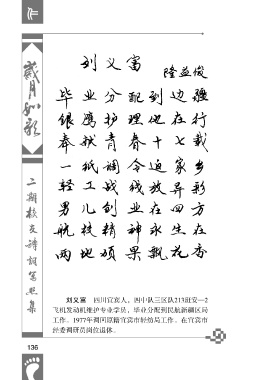 作
刘义富
隆益俊
毕业分配到边疆
银鹰护理他在行
奉献青春十七载
一纸调令返家乡
轻工战线放异彩
男儿创业在四方
航校精神永生在
两地硕果飘花香
岁月如歌
二期校友诗词写照集
刘义富 四川宜宾人，四中队三区队213班安—2
飞机发动机维护专业学员，毕业分配到民航新疆区局
工作。1977年调回原籍宜宾市轻纺局工作。在宜宾市
经委调研员岗位退休。
136